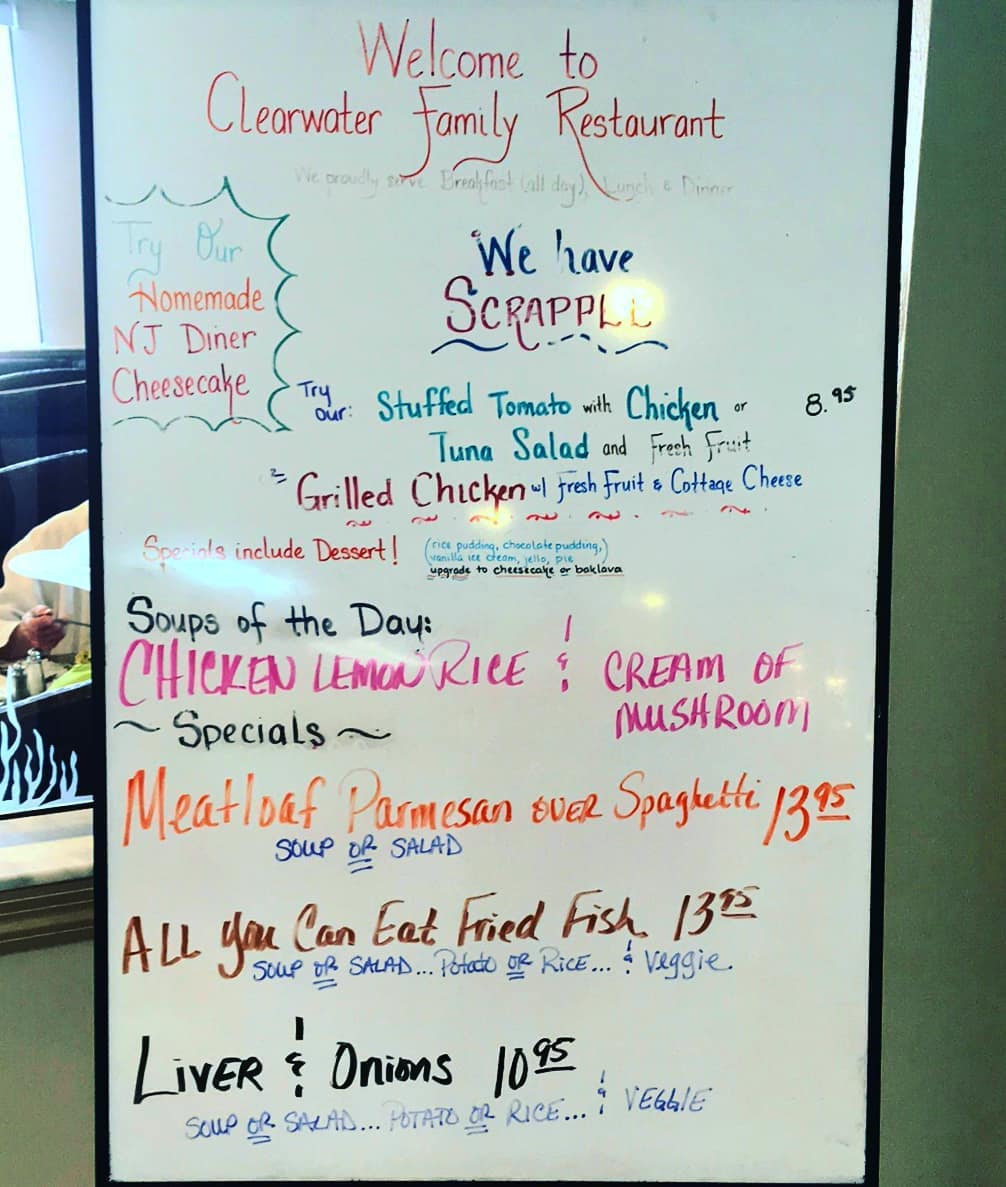 Welcome to
Clearwater Family Restaurant
We proudly serve Breakfast (all day), Lunch & Dinner
Try Our
Homemade
NJ Diner
Cheesecake
We have
SCRAPPLE
Try
our: Stuffed Tomato with Chicken or 8.95
Tuna Salad and Fresh Fruit
Grilled Chicken w/ Fresh Fruit & Cottage Cheese
Specials include Dessert! (rice pudding, chocolate pudding,)
vanilla ice cream, jello, pie
upgrade to cheesecake or baklava
Soups of the Day:
CHICKEN LEMON RICE & CREAM OF
MUSHROOM
~ Specials ~
Meatloaf Parmesan OVER Spaghetti 13.95
SOUP OR SALAD
ALL You Can Eat Fried Fish 13.95
SOUP OR SALAD... Potato OR RICE... & Veggie.
LIVER & Onions 10.95
SOUP OR SALAD... POTATO OR RICE... & VEGGIE